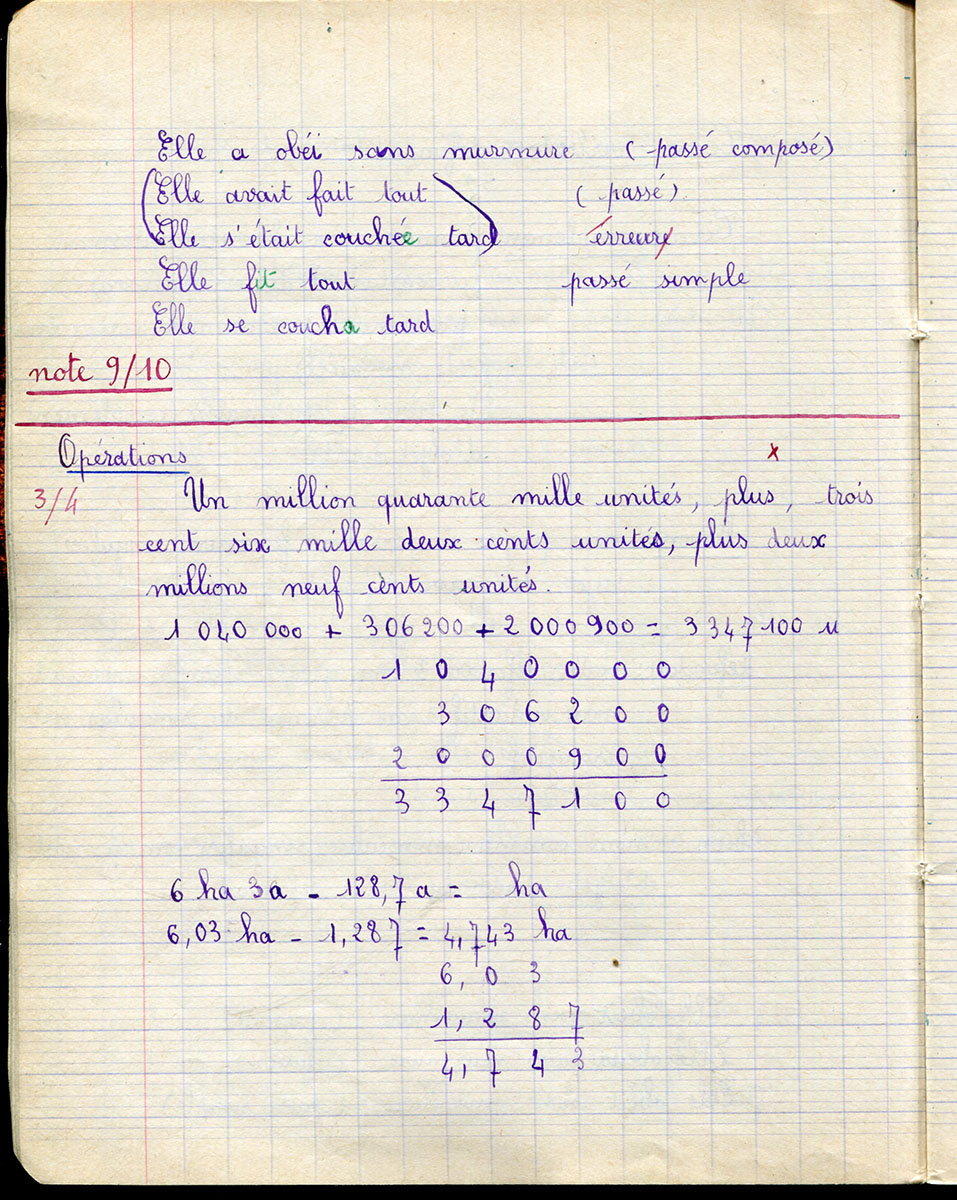 Elle a obéi sans murmure (passé composé)
(Elle avait fait tout (passé).
Elle s'était couchée tard) erreure
Elle fit tout passé simple
Elle se coucha tard
note 9/10
Opérations x
3/4 Un million quarante mille unités, plus, trois
cent six mille deux cents unités, plus deux
millions neuf cents unités.
1 040 000 + 306 200 + 2 000 900 = 3 347 100 u
1 0 4 0 0 0 0
3 0 6 2 0 0
2 0 0 0 9 0 0
3 3 4 7 1 0 0
6 ha 3a - 128,7 a = ha
6,03 ha - 1,287 = 4,743 ha
6, 0 3
1, 2 8 7
4, 7 4 3